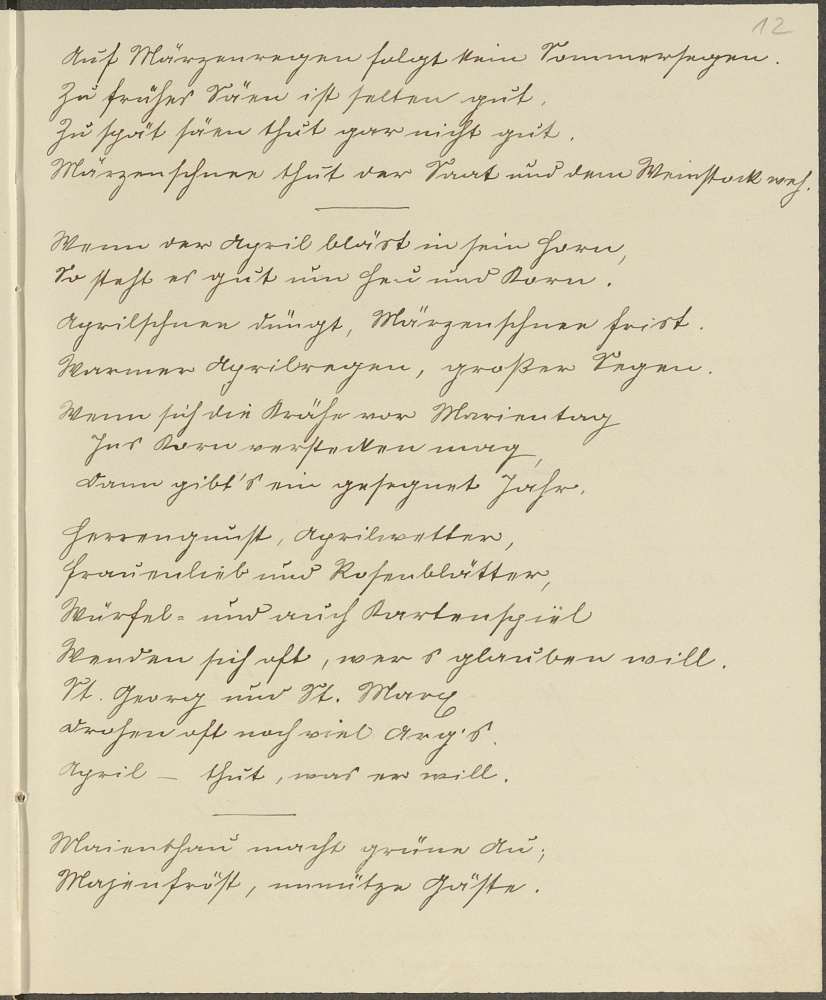 12
Auf Märzenregen folgt kein Sommersegen.
Zu frühes Säen ist selten gut,
Zu spät säen thut gar nicht gut.
Märzenschnee thut der Saat und dem Weinstock weh.
Wenn der April bläst in sein Horn,
So steht es gut um Heu und Korn.
Aprilschnee düngt, Märzenschnee frist.
Warmer Aprilregen, großer Segen.
Wenn sich die Krähe vor Marientag
Ins Korn verstecken mag,
Dann gibt's ein gesegnet Jahr.
Herrengunst, Aprilwetter,
Frauenlieb und Rosenblätter,
Würfel- und auch Kartenspiel
Wenden sich oft, wer s glauben will.
St. Georg und St. Marx
Drohen oft noch viel Arg's.
April – thut, was er will.
Maienthau macht grüne Au;
Majenfröst, unnütze Gäste.